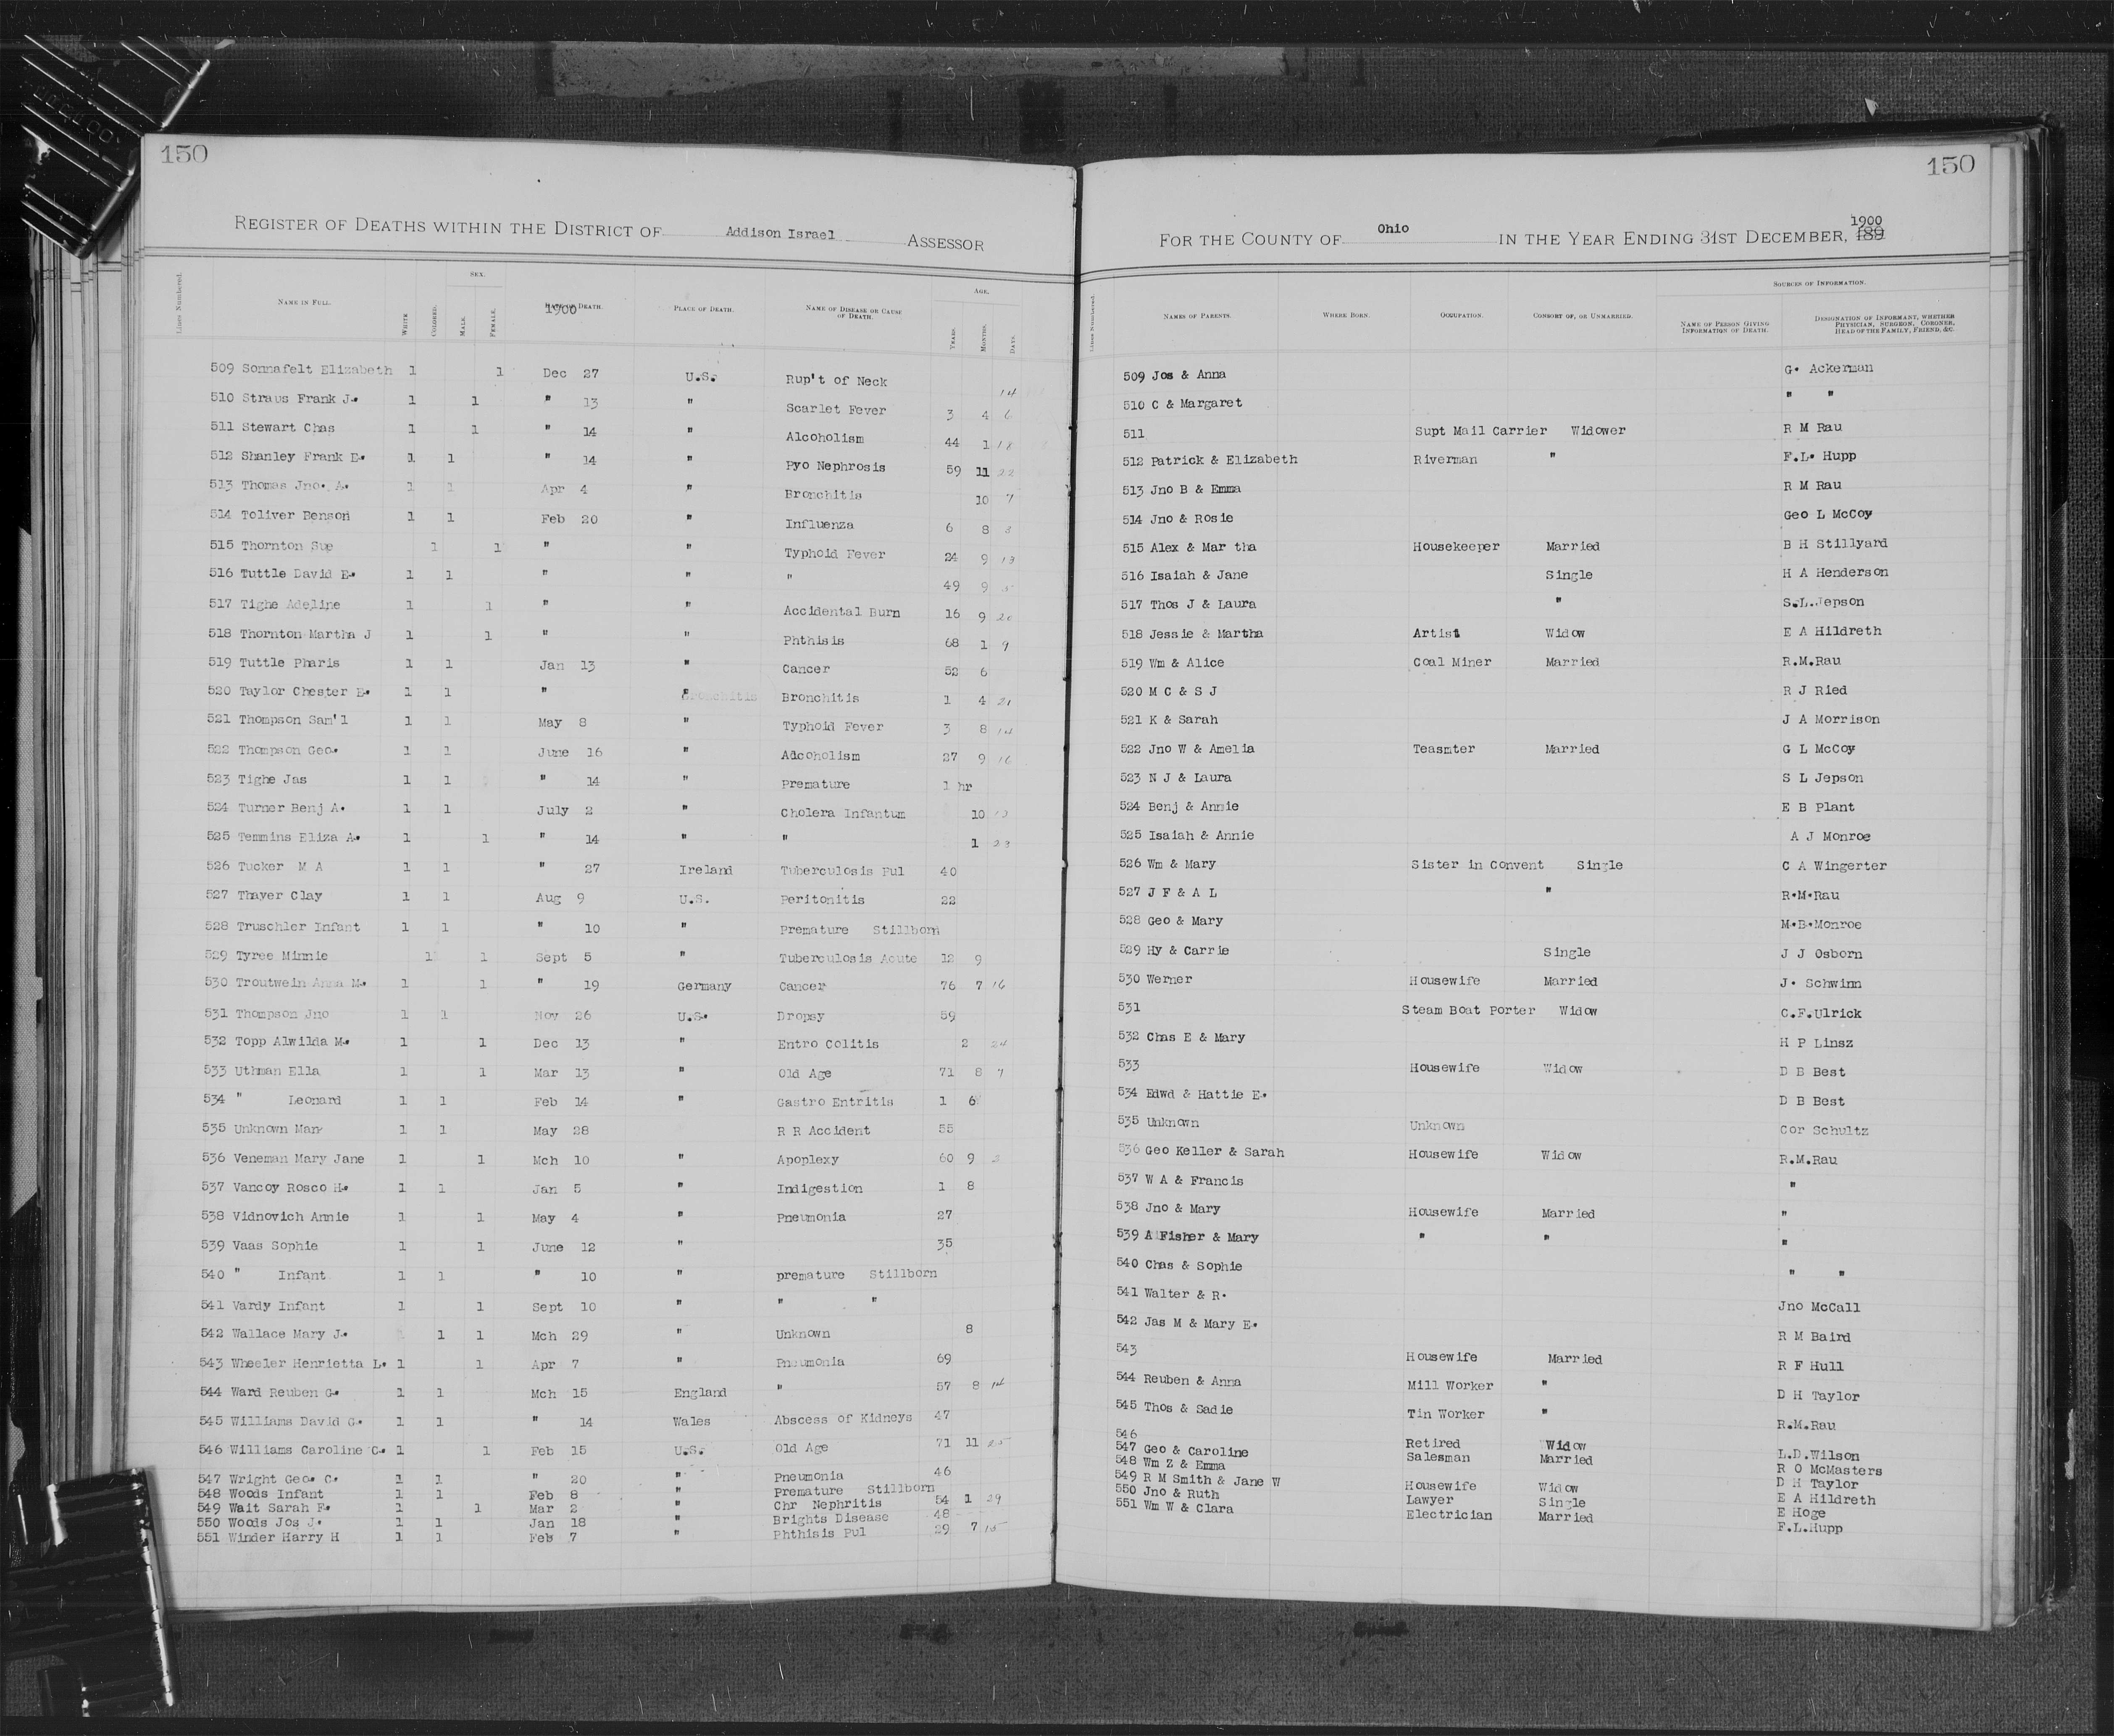 150
REGISTER OF DEATHS WITHIN THE DISTRICT OF Addison Israel ASSESSOR
Lines Numbered. NAME IN FULL. WHITE COLORED. SEX. MALE. FEMALE. DATE OF DEATH. 1900 PLACE OF DEATH. NAME OF DISEASE OR CAUSE OF DEATH. AGE. YEARS. MONTHS. DAYS.
509 Sonnafelt Elizabeth 1 1 Dec 27 U.S. Rup't of Neck 14
510 Straus Frank J. 1 1 " 13 " Scarlet Fever 3 4 6
511 Stewart Chas 1 1 " 14 " Alcoholism 44 1 18
512 Shanley Frank E. 1 1 " 14 " Pyo Nephrosis 59 11 22
513 Thomas Jno. A. 1 1 Apr 4 " Bronchitis 10 7
514 Toliver Benson 1 1 Feb 20 " Influenza 6 8 3
515 Thornton Sue 1 1 " " Typhoid Fever 24 9 13
516 Tuttle David E. 1 1 " " " 49 9 5
517 Tighe Adeline 1 1 " " Accidental Burn 16 9 20
518 Thornton Martha J 1 1 " " Phthisis 68 1 9
519 Tuttle Pharis 1 1 Jan 13 " Cancer 52 6
520 Taylor Chester B. 1 1 " " Bronchitis 1 4 21
521 Thompson Sam'l 1 1 May 8 " Typhoid Fever 3 8 14
522 Thompson Geo. 1 1 June 16 " Adcoholism 27 9 16
523 Tighe Jas 1 1 " 14 " Premature 1 hr
524 Turner Benj A. 1 1 July 2 " Cholera Infantum 10
525 Temmins Eliza A. 1 1 " 14 " " 1 23
526 Tucker M A 1 1 " 27 Ireland Tuberculosis Pul 40
527 Thayer Clay 1 1 Aug 9 U.S. Peritonitis 22
528 Truschler Infant 1 1 " 10 " Premature Stillborn
529 Tyree Minnie 1 1 Sept 5 " Tuberculosis Acute 12 9
530 Troutwein Anna M. 1 1 " 19 Germany Cancer 76 7 16
531 Thompson Jno 1 1 Nov 26 U.S. Dropsy 59
532 Topp Alwilda M. 1 1 Dec 13 " Entro Colitis 2 24
533 Uthman Ella 1 1 Mar 13 " Old Age 71 8 7
534 " Leonard 1 1 Feb 14 " Gastro Entritis 1 6
535 Unknown Man 1 1 May 28 R R Accident 55
536 Veneman Mary Jane 1 1 Mch 10 " Apoplexy 60 9
537 Vancoy Rosco H. 1 1 Jan 5 " Indigestion 1 8
538 Vidnovich Annie 1 1 May 4 " Pneumonia 27
539 Vaas Sophie 1 1 June 12 " 35
540 " Infant 1 1 " 10 " premature Stillborn
541 Vardy Infant 1 1 Sept 10 " " "
542 Wallace Mary J. 1 1 Mch 29 " Unknown 8
543 Wheeler Henrietta L. 1 1 Apr 7 " Pneumonia 69
544 Ward Reuben G. 1 1 Mch 15 England " 57 8 14
545 Williams David G. 1 1 " 14 Wales Abscess of Kidneys 47
546 Williams Caroline C. 1 1 Feb 15 U.S. Old Age 71 11 25
547 Wright Geo. C. 1 1 " 20 " Pneumonia 46
548 Woods Infant 1 1 Feb 8 " Premature Stillborn
549 Wait Sarah F. 1 1 Mar 2 " Chr Nephritis 54 1 29
550 Woods Jos J. 1 1 Jan 18 " Brights Disease 48
551 Winder Harry H 1 1 Feb 7 " Phthisis Pul 29 7 15
150
FOR THE COUNTY OF Ohio IN THE YEAR ENDING 31ST DECEMBER, 189 1900
Lines Numbered. NAMES OF PARENTS. WHERE BORN. OCCUPATION. CONSORT OF, OR UNMARRIED. SOURCES OF INFORMATION. NAME OF PERSON GIVING INFORMATION OF DEATH. DESIGNATION OF INFORMANT, WHETHER PHYSICIAN, SURGEON, CORONER, HEAD OF THE FAMILY, FRIEND, &C.
509 Jos & Anna G. Ackerman
510 C & Margaret " "
511 Supt Mail Carrier Widower R M Rau
512 Patrick & Elizabeth Riverman " F.L. Hupp
513 Jno B & Emma R M Rau
514 Jno & Rosie Geo L McCoy
515 Alex & Mar tha Housekeeper Married B H Stillyard
516 Isaiah & Jane Single H A Henderson
517 Thos J & Laura " S.L.Jepson
518 Jessie & Martha Artist Widow E A Hildreth
519 Wm & Alice Coal Miner Married R.M.Rau
520 M C & S J R J Ried
521 K & Sarah J A Morrison
522 Jno W & Amelia Teasmter Married G L McCoy
523 N J & Laura S L Jepson
524 Benj & Annie E B Plant
525 Isaiah & Annie A J Monroe
526 Wm & Mary Sister in Convent Single C A Wingerter
527 J F & A L " R.M.Rau
528 Geo & Mary M.B.Monroe
529 Hy & Carrie Single J J Osborn
530 Werner Housewife Married J. Schwinn
531 Steam Boat Porter Widow C.F.Ulrick
532 Chas E & Mary H P Linsz
533 Housewife Widow D B Best
534 Edwd & Hattie E. D B Best
535 Unknown Unknown Cor Schultz
536 Geo Keller & Sarah Housewife Widow R.M.Rau
537 W A & Francis "
538 Jno & Mary Housewife Married "
539 A Fisher & Mary " " "
540 Chas & Sophie " "
541 Walter & R. Jno McCall
542 Jas M & Mary E. R M Baird
543 Housewife Married R F Hull
544 Reuben & Anna Mill Worker " D H Taylor
545 Thos & Sadie Tin Worker " R.M.Rau
546 Retired Widow L.D.Wilson
547 Geo & Caroline Salesman Married R O McMasters
548 Wm Z & Emma D H Taylor
549 R M Smith & Jane W Housewife Widow E A Hildreth
550 Jno & Ruth Lawyer Single E Hoge
551 Wm W & Clara Electrician Married F.L.Hupp